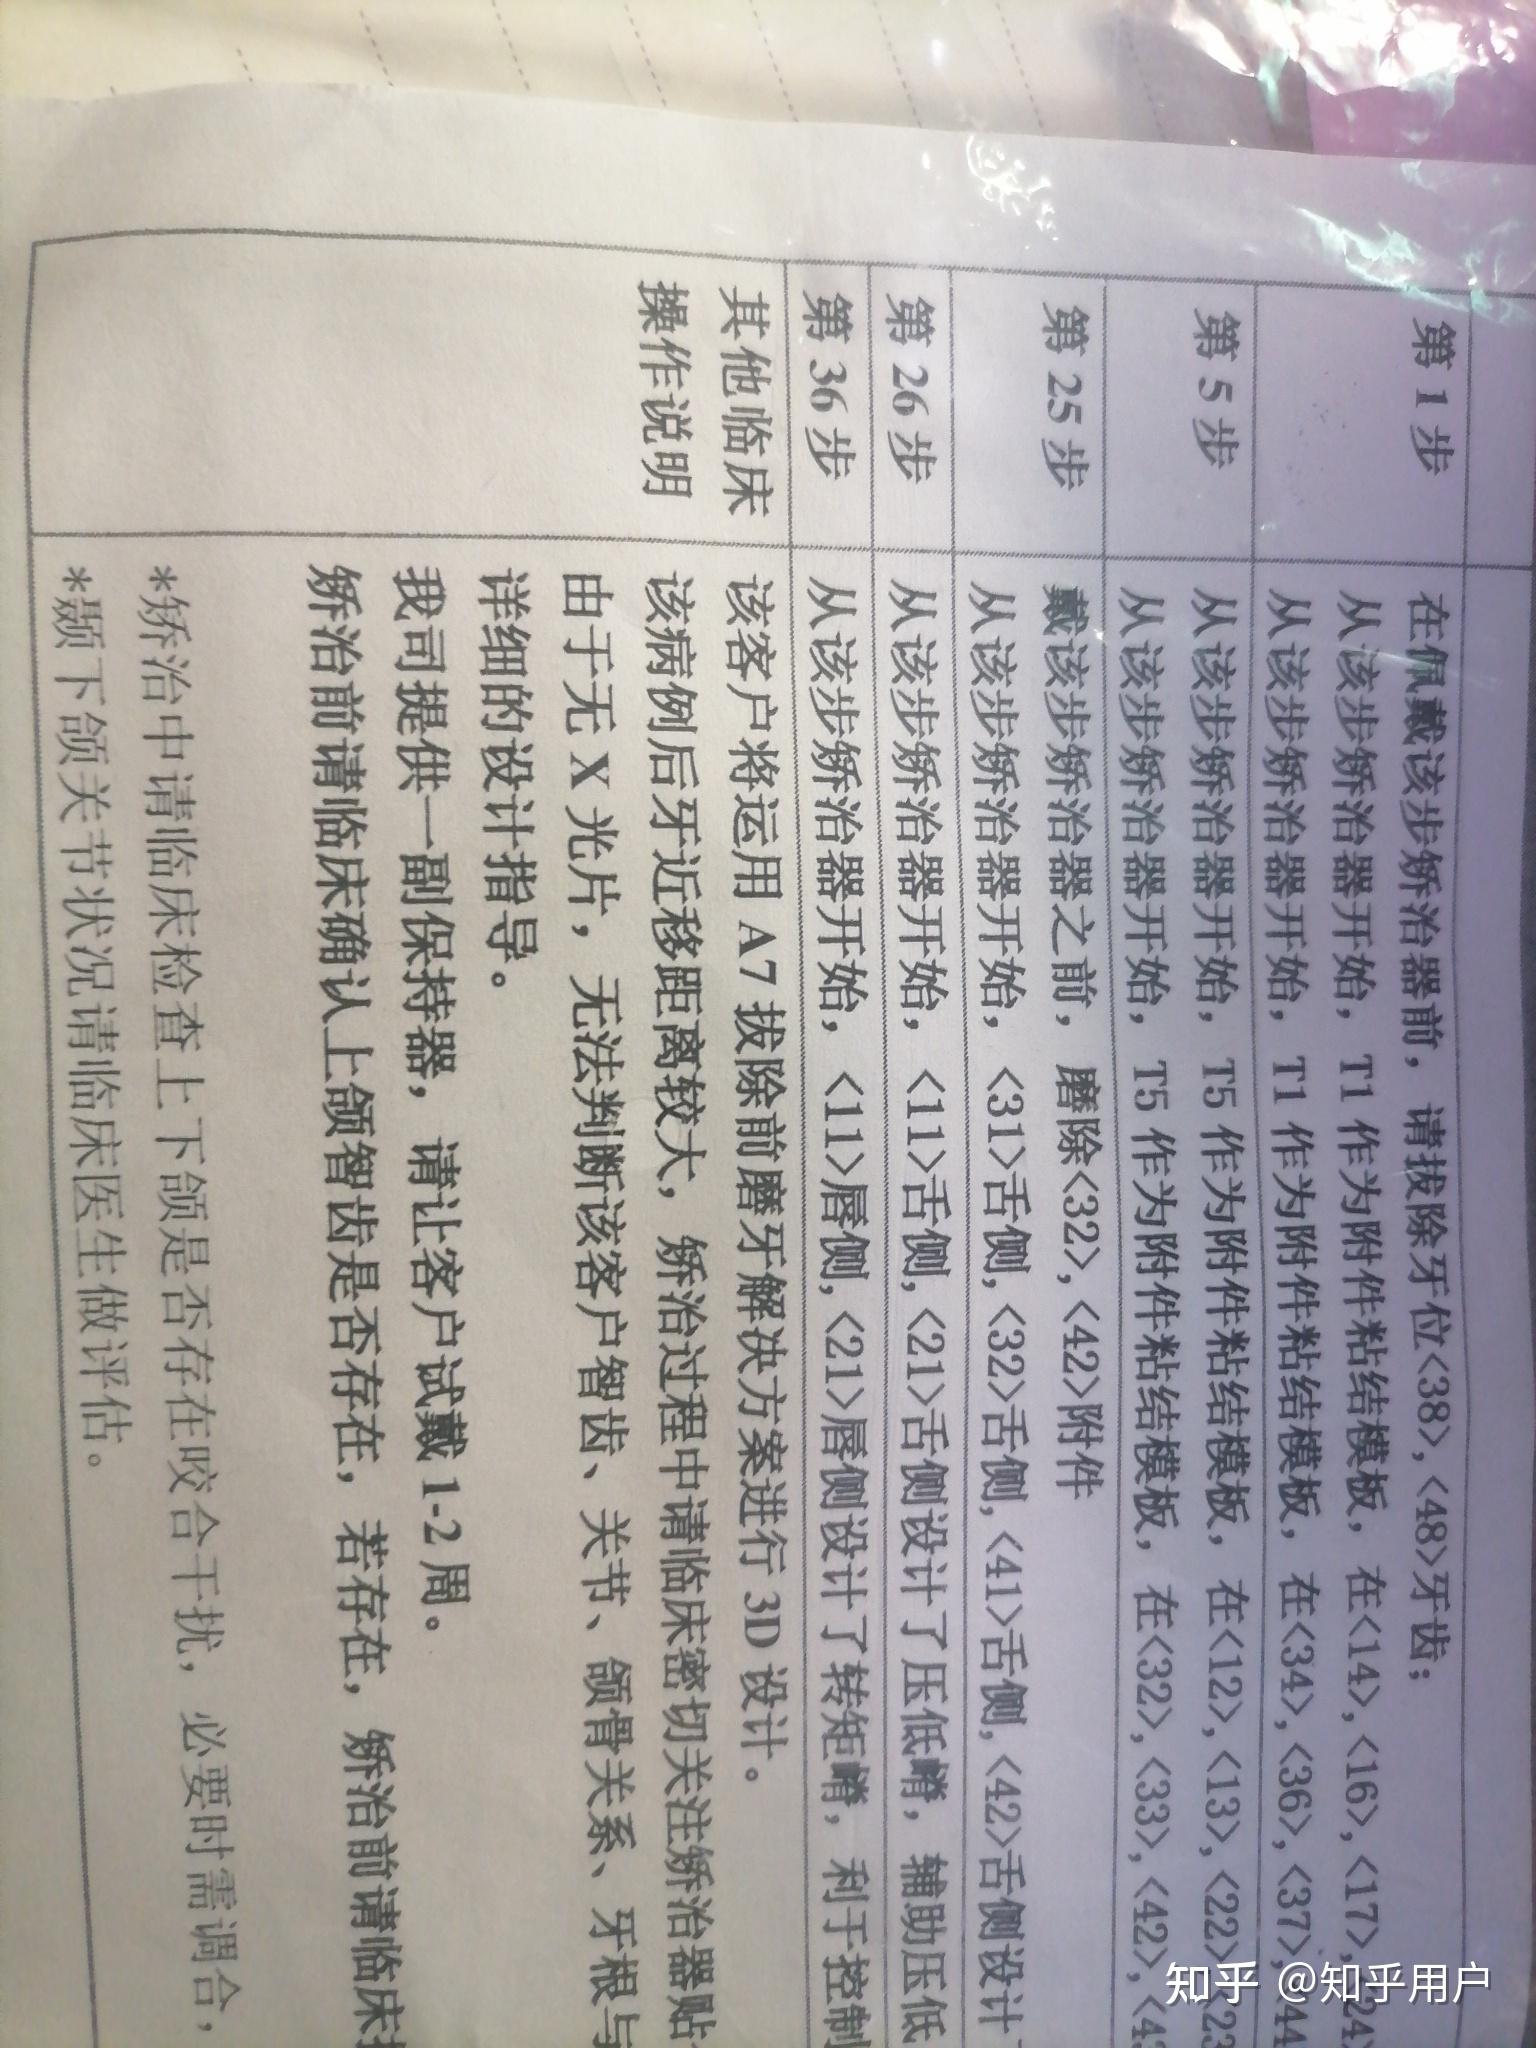 第 1 步
在佩戴该步矫治器前，请拔除牙位<38>,<48>牙齿；
从该步矫治器开始，T1 作为附件粘结模板，在<14>,<16>,<17>,<24>
从该步矫治器开始，T1 作为附件粘结模板，在<34>,<36>,<37>,<44
第 5 步
从该步矫治器开始，T5 作为附件粘结模板，在<12>,<13>,<22>,<23
从该步矫治器开始，T5 作为附件粘结模板，在<32>,<33>,<42>,<43
第 25 步
戴该步矫治器之前，磨除<32>,<42>附件
从该步矫治器开始，<31>舌侧,<32>舌侧,<41>舌侧,<42>舌侧设计
第 26 步
从该步矫治器开始，<11>舌侧,<21>舌侧设计了压低嵴，辅助压低
第 36 步
从该步矫治器开始，<11>唇侧,<21>唇侧设计了转矩嵴，利于控制
其他临床
操作说明
该客户将运用 A7 拔除前磨牙解决方案进行 3D 设计。
该病例后牙近移距离较大，矫治过程中请临床密切关注矫治器贴
由于无 X 光片，无法判断该客户智齿、关节、颌骨关系、牙根与
详细的设计指导。
我司提供一副保持器，请让客户试戴 1-2 周。
矫治前请临床确认上颌智齿是否存在，若存在，矫治前请临床
*矫治中请临床检查上下颌是否存在咬合干扰，必要时需调合，
*颞下颌关节状况请临床医生做评估。
知乎 @知乎用户